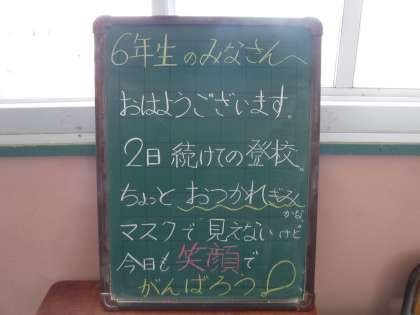 6年生のみなさんへ
おはようございます。
2日続けての登校。
ちょっと おつかれぎみ
かな
マスクで見えないけど
今日も笑顔で
がんばろう!